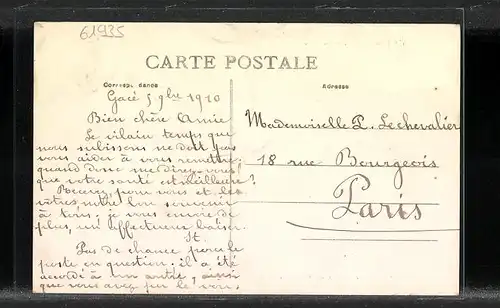 61935
CARTE POSTALE
Correspondance
Adresse
Gacé 5 9bre 1910
Bien chère Amie
Le vilain temps que
nous subissons ne doit pas
vous aider à vous remettre,
quand donc me direz-vous
que votre santé est meilleure?
Recevez pour vous et les
vôtres notre bon souvenir
à tous, je vous envoie de
plus, un affectueux baiser.
Pas de chance pour le
poste en question; il a été
accordé à un autre, ainsi
que vous avez pu le voir.
Mademoiselle P. Lechevalier
18 rue Bourgeois
Paris